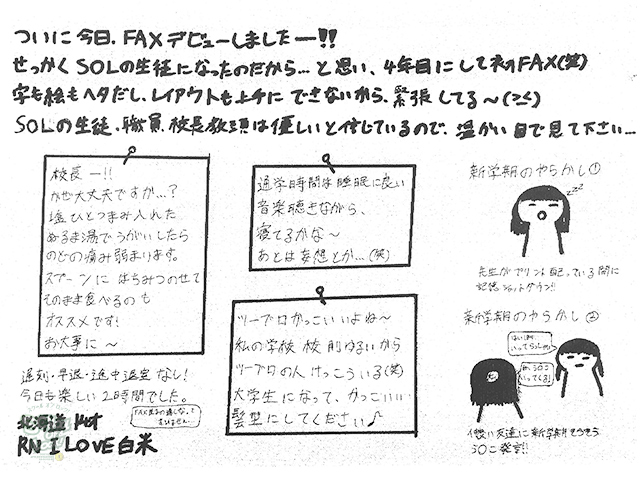 ついに今日、FAXデビューしましたー!!
せっかくSOLの生徒になったのだから…と思い、4年目にして初FAX(笑)
字も絵もヘタだし、レイアウトも上手にできないから、緊張してる〜(><)
SOLの生徒、職員、校長教頭は優しいと信じているので、温かい目で見て下さい…
校長ー!!
かぜ大丈夫ですか…?
塩ひとつまみ入れた
ぬるま湯でうがいしたら
のどの痛み弱まります。
スプーンにはちみつのせて
そのまま食べるのも
オススメです!
お大事に〜
通学時間は睡眠に良い
音楽聴きながら、
寝てるかな〜
あとは妄想とか…(笑)
ツーブロかっこいいよね〜
私の学校校則ゆるいから
ツーブロの人けっこういる(笑)
大学生になって、かっこいい
髪型にしてください♪
新学期のやらかし①
zzz
先生がプリント配っている間に
記憶シャットダウン!!
新学期のやらかし②
はい!
いってらっしゃい
ってくる
仲良い友達に新学期そうそう
発言!!
遅刻・早退・途中退室なし!
今日も楽しい2時間でした。
北海道 Hot
RN I LOVE白米